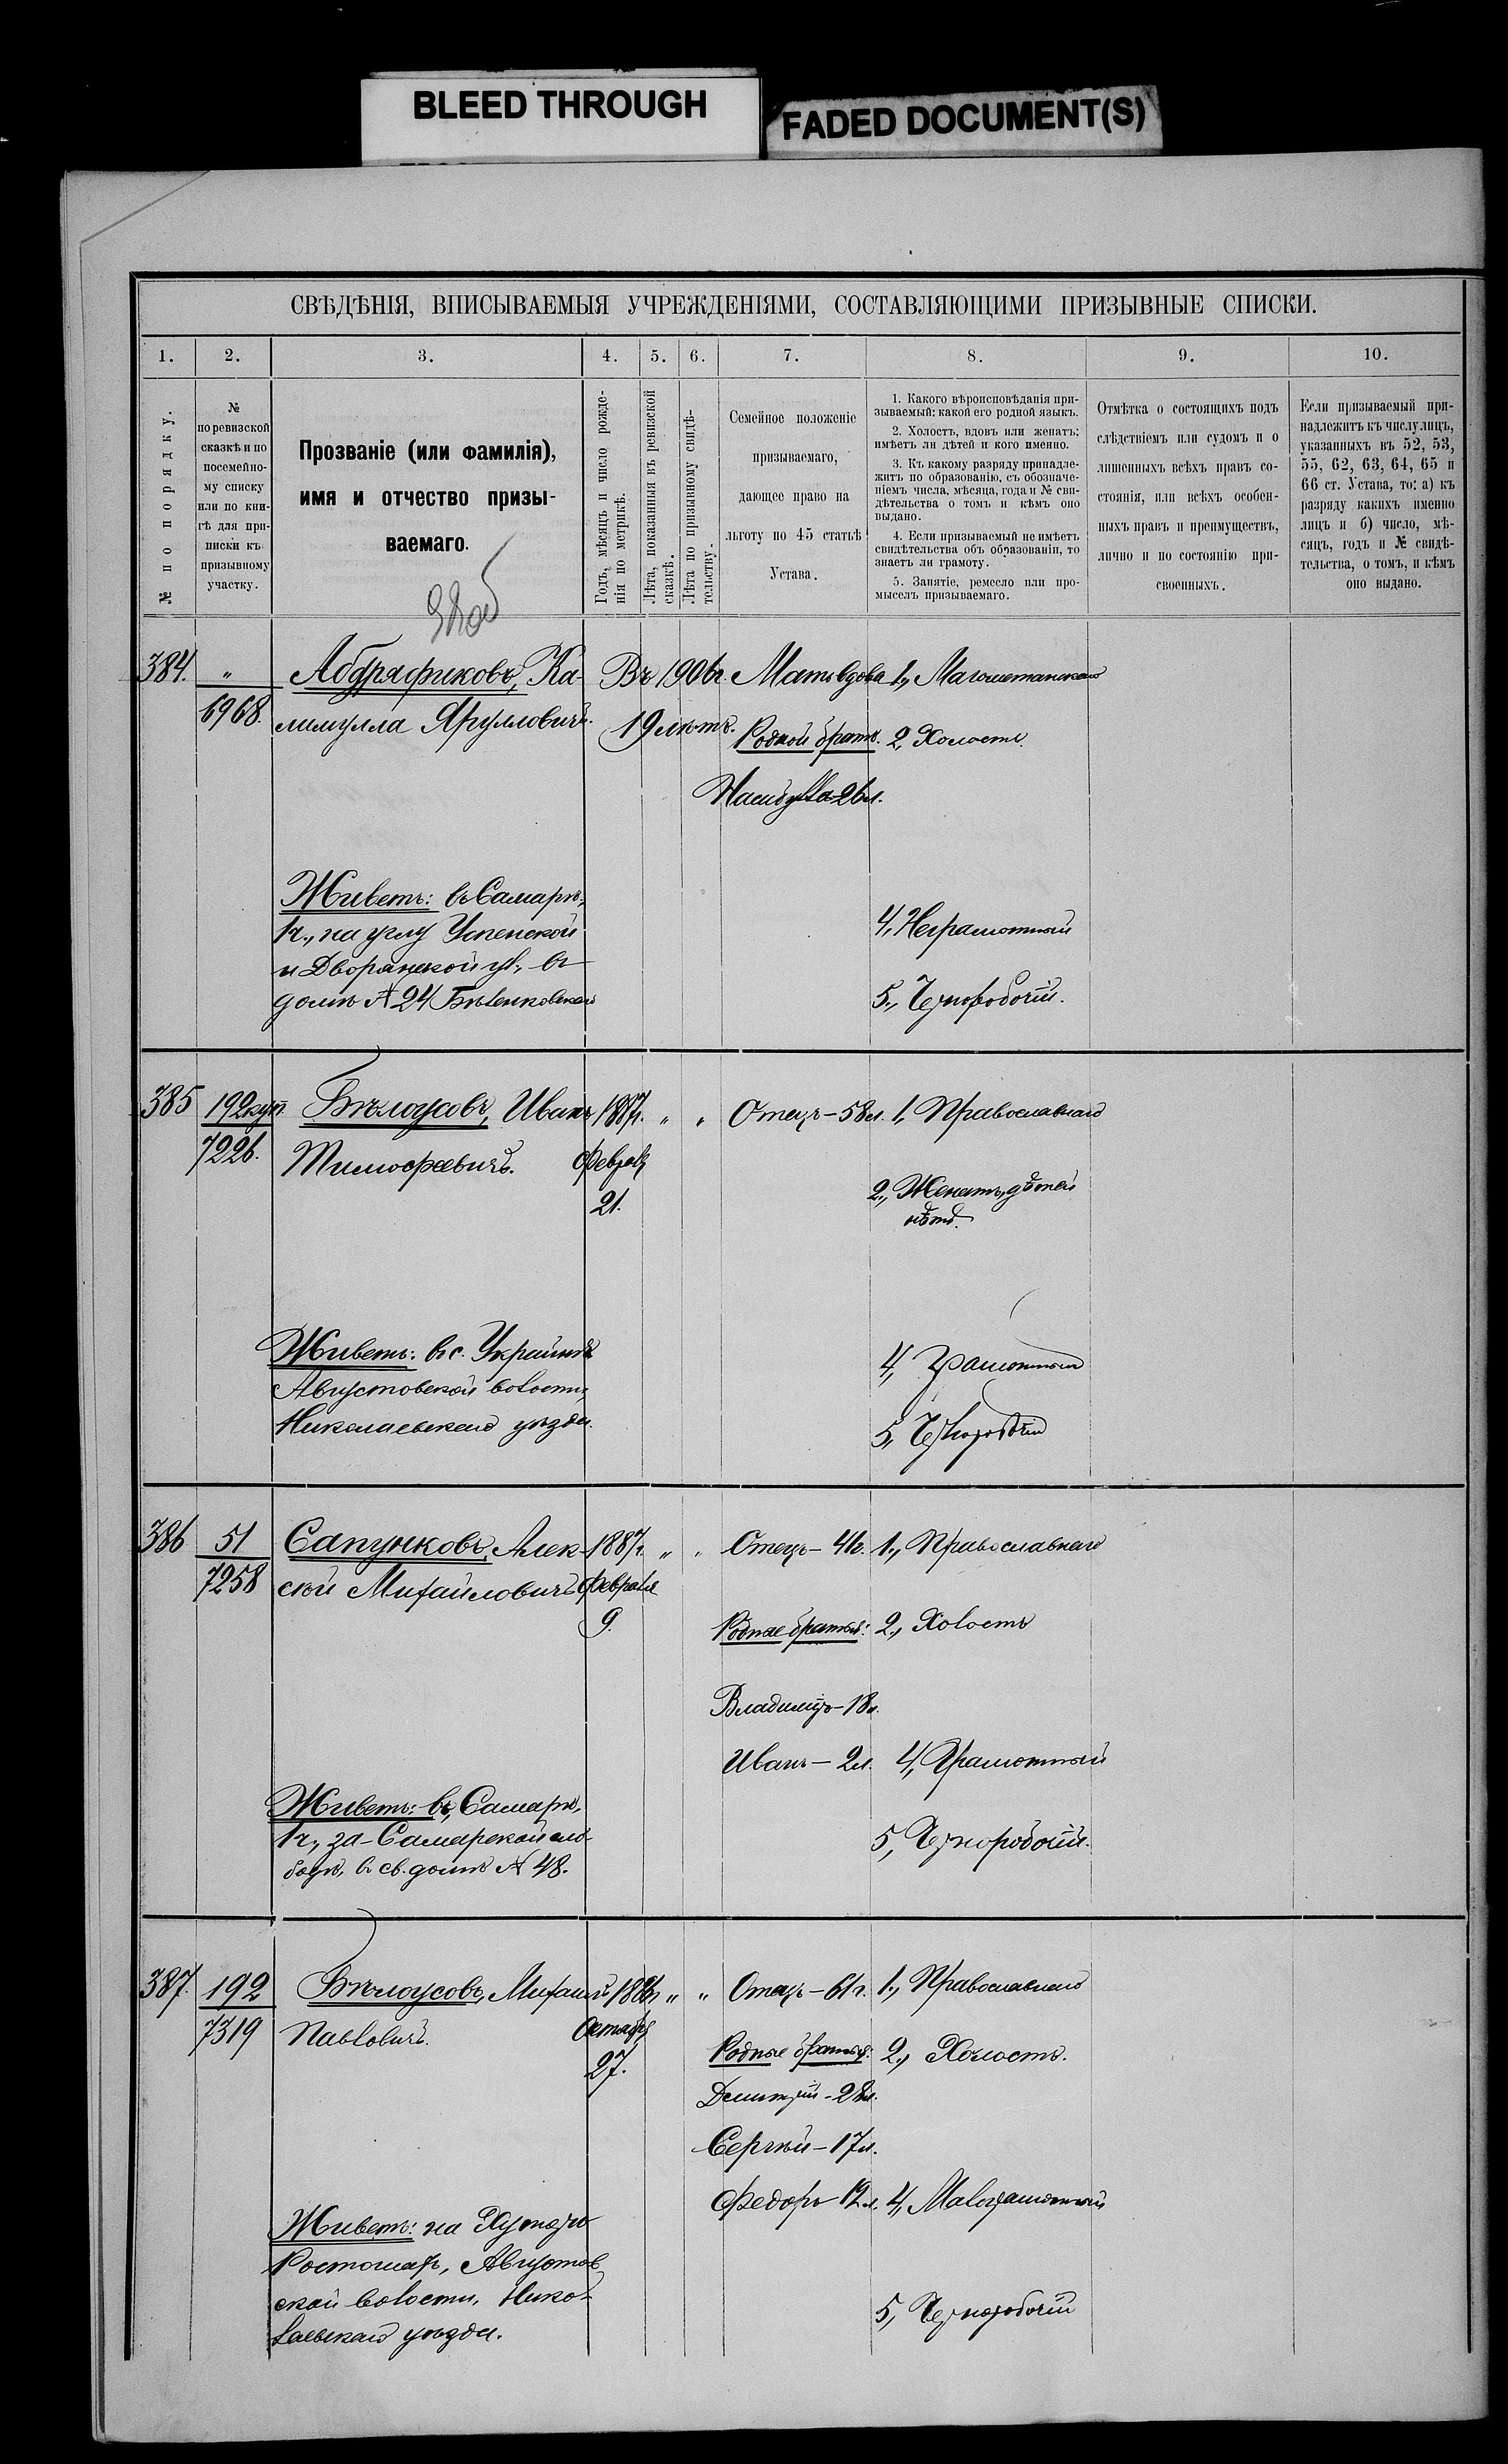 BLEED THROUGH
FADED DOCUMENT(S)
СВѢДѢНІЯ, ВПИСЫВАЕМЫЯ УЧРЕЖДЕНІЯМИ, СОСТАВЛЯЮЩИМИ ПРИЗЫВНЫЕ СПИСКИ.
1. 2. 3. 4. 5. 6. 7. 8. 9. 10.
№ по порядку.
№
по ревизской
сказкѣ и по
посемейно-
му списку
или по кни-
гѣ для при-
писки къ
призывному
участку.
Прозваніе (или фамилія),
имя и отчество призы-
ваемаго.
Годъ, мѣсяцъ и число рожде-
нія по метрикѣ.
Лѣта, показанныя въ ревизской
сказкѣ.
Лѣта по призывному свидѣ-
тельству.
Семейное положеніе
призываемаго,
дающее право на
льготу по 45 статьѣ
Устава.
1. Какого вѣроисповѣданія при-
зываемый: какой его родной языкъ.
2. Холостъ, вдовъ или женатъ;
имѣетъ ли дѣтей и кого именно.
3. Къ какому разряду принадле-
житъ по образованію, съ обозначе-
ніемъ числа, мѣсяца, года и № сви-
дѣтельства о томъ и кѣмъ оно
выдано.
4. Если призываемый не имѣетъ
свидѣтельства объ образованіи, то
знаетъ ли грамоту.
5. Занятіе, ремесло или про-
мыселъ призываемаго.
Отмѣтка о состоящихъ подъ
слѣдствіемъ или судомъ и о
лишенныхъ всѣхъ правъ со-
стоянія, или всѣхъ особен-
ныхъ правъ и преимуществъ,
лично и по состоянію при-
своенныхъ.
Если призываемый при-
надлежитъ къ числу лицъ,
указанныхъ въ 52, 53,
55, 62, 63, 64, 65 и
66 ст. Устава, то: а) къ
разряду какихъ именно
лицъ и б) число, мѣ-
сяцъ, годъ и № свидѣ-
тельства, о томъ, и кѣмъ
оно выдано.
384. " Абдрафиковъ, Ка- Въ 1906г. Мать вдова 1., Магометанскаго
6968. лимулла Яруллович. 19 лѣтъ. Родной братъ. 2, Холостъ.
Насибулла 26л.
Живетъ: въ Самарѣ,
1ч., на углу Успенской
и Дворянской ул., въ
домѣ № 24
4, Неграмотный
5., Чернорабочій.
385 192 куп. Бѣлоусовъ, Иванъ 1887г. " " Отецъ - 58л. 1, Православнаго
7226. Тимофеевичъ. Февраля
21.
2., Женатъ, дѣтей
нѣтъ.
Живетъ: въ с. Украинкѣ
Августовской волости,
Николаевскаго уѣзда.
4, Грамотный
5, Чернорабочій
386 51 Сапунковъ, Алек- 1887г. " " Отецъ - 41г. 1., Православнаго
7258 сѣй Михайловичъ Февраля
9.
Родные братья: 2., Холостъ
Владиміръ - 18л.
Иванъ - 2л. 4, Грамотный
Живетъ: въ Самарѣ,
1ч., за-Самарской сло-
бодѣ, в св. домѣ № 48.
5, Чернорабочій.
387. 192 Бѣлоусовъ, Михаилъ " " Отецъ - 61г. 1., Православнаго
7319 Павловичъ. Октября
27.
Родные братья: 2., Холостъ.
Дмитрій - 28л.
Сергѣй - 17л.
Федоръ 12л. 4, Малограмотный
Живетъ: на Хуторѣ
Ростошахъ, Августов-
ской волости, Нико-
лаевскаго уѣзда.
5, Чернорабочій